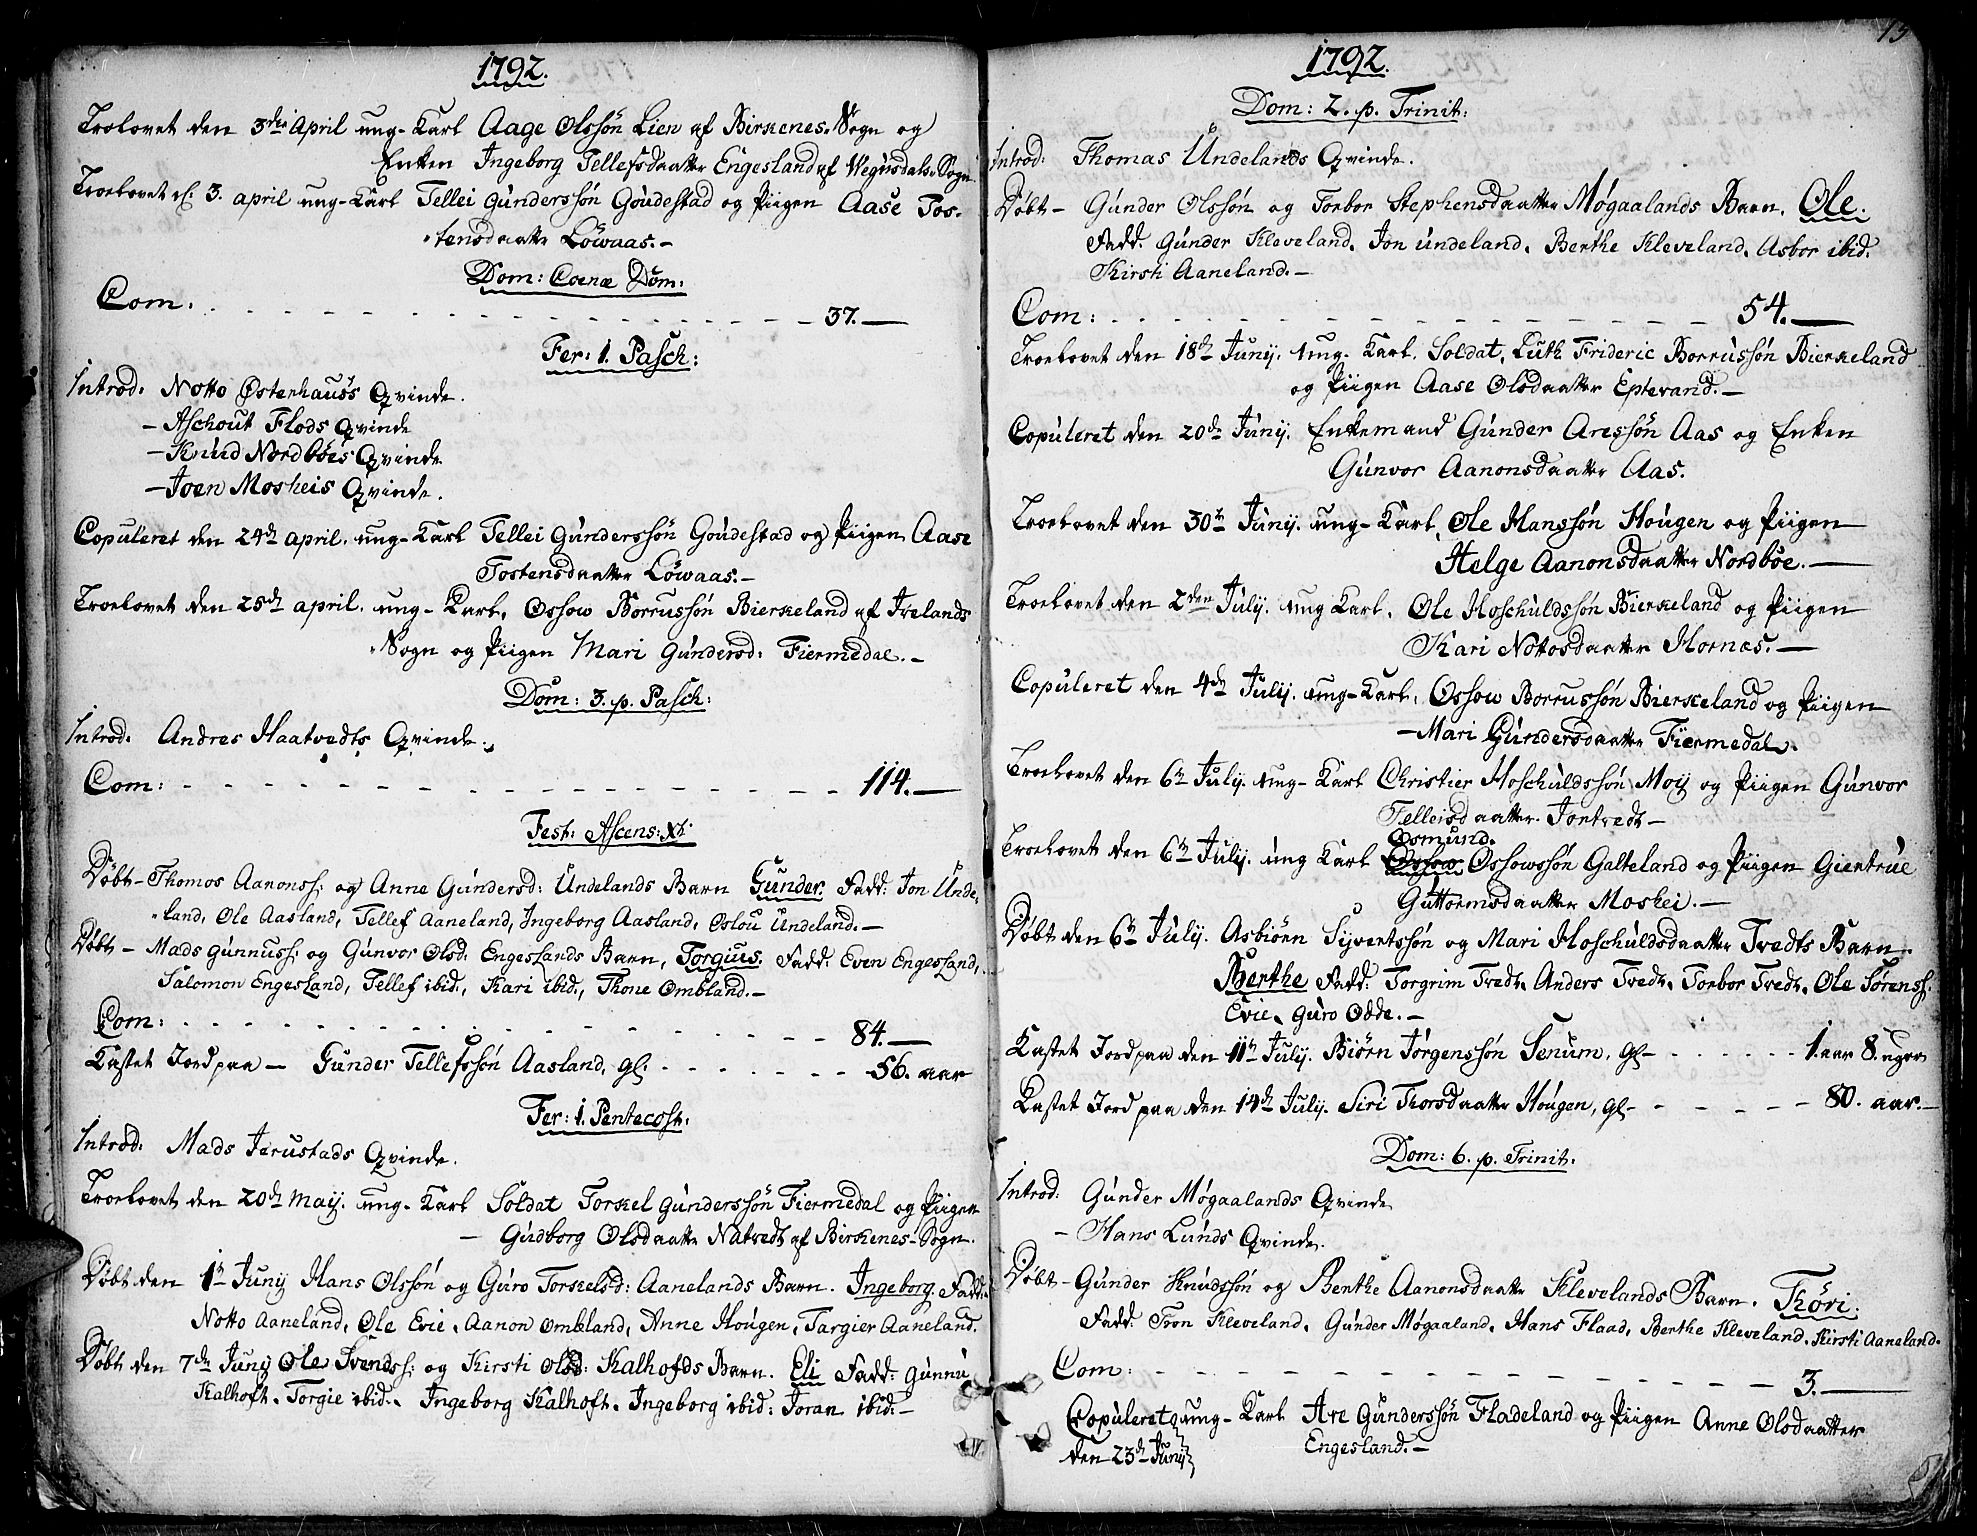 1792.
Trolovet den 3die April ung-Karl Aage Olssön Lien af Birkenes-Sogn og
Enken Ingeborg Tellefsdaatter Engesland af Wegusdals-Sogn
Troelovet d. 3. april ung-Karl Tellei Gunderssön Goudestad og Piigen Aase Tos-
tensdaatter Löwaas.-
Dom: Coenæ Dom:
Com: 37.
Fer: 1. Pasch:
Introd: Notto Østenhaus's Qvinde.
- Aschout Flods Qvinde
- Knud Nordböes Qvinde
- Joen Mosheis Qvinde.
Copuleret den 24de april. ung-Karl Tellei Gunderssön Goudestad og Piigen Aase
Tostensdaatter Löwaas.-
Troelovet den 25de april. ung-Karl, Ossow Borrussön Bierkeland af Irelands
Sogn og Piigen Mari Gundersd: Fiermedal.-
Dom: 3. p. Pasch:
Introd: Andres Haatvedts Qvinde.
Com: 114.
Fest: Ascens: Xti
Döbt- Thomos Aanonss: og Anne Gundersd: Undelands Barn Gunder. Fadd: Jon Unde,
land, Ole Aasland, Tellef Aaneland, Ingeborg Aasland, Oslou Undeland.-
Döbt- Mads Gunnuss: og Gunvor Olsd. Engeslands Barn, Torgius. Fadd: Even Engesland,
Salomon Engesland, Tellef ibid., Kari ibid., Thone Ombland.-
Com: 84.
Kastet Jord paa- Gunder Tellefssön Aasland, gl: 56. aar
Fer: 1. Pentecost.
Introd: Mads Jerustads Qvinde.
Troelovet den 20de Maij. ung-Karl Soldat Torkel Gunderssön Fiermedal og Piigen
- Gudborg Olsdaatter Natvedt af Birkenes-Sogn.
Döbt den 1te Junij Hans Olssön og Guro Torkelsd: Aanelands Barn. Ingeborg. Fadd:
Notto Aaneland, Ole Evie, Aanon Ombland, Anne Hougen, Targier Aaneland.
Döbt den 7de Junij Ole Svendss: og Kirsti Olsd: Kalhofds Barn. Eli Fadd: Gunnu
Kalhoft. Torgie ibid., Ingeborg Kalhoft, Ingeborg ibid: Joran ibid:-
15
1792.
Dom: 2. p. Trinit:
Introd: Thomas Undelands Qvinde.
Döbt- Gunder Olssön og Torbor Stephensdaatter Møgaalands Barn. Ole.
Fadd. Gunder Kleveland. Jon Undeland. Berthe Kleveland. Asbor ibid.
Kirsti Aaneland.-
Com: 54.
Troelovet den 18de Junij. ung-Karl. Soldat, Luth Frideric Borrussön Bierkeland
og Piigen Aase Olsdaatter Eptevand.-
Copuleret den 20de Junij. Enkemand Gunder Aressön Aas og Enken
Gunvor Aanonsdaatter Aas.
Troelovet den 30te Junij. ung-Karl, Ole Hanssön Hougen og Piigen
Helge Aanonsdaatter Nordböe.-
Troelovet den 2den Julij. ung Karl. Ole Hoschuldssön Bierkeland og Piigen
Kari Nottosdaatter Hornes.-
Copuleret den 4de Julij. ung-Karl, Ossow Borrussön Bierkeland og Piigen
- Mari Gundersdaatter Fiermedal.
Troelovet den 6te Julij. ung-Karl Christier Hoschuldssön Moij og Piigen Gunvor
Telleisdaatter Jontvedt-
Osmund.
Troelovet den 6te Julij. ung Karl Ossow Ossowssön Galteland og Piigen Gientrue
Guttormsdaatter Moskei.-
Döbt den 6te Julij. Asbiörn Sijvertssön og Mari Hoschuldsdaatter Tvedts Barn.
Berthe Fadd: Torgrim Tvedt. Anders Tvedt. Torbor Tvedt. Ole Sörenss:
Evie. Guro Odde.-
Kastet Jord paa den 11te Julij. Biörn Jörgenssön Senum, gl- 1. aar 8. uger
Kastet Jord paa den 14de Julij. Siri Torsdaatter Hougen, gl- 80. aar.-
Dom: 6. p. Trinit.
Introd: Gunder Møgaalands Qvinde
- Hans Lunds Qvinde.
Döbt- Gunder Knudssön og Berthe Aanonsdaatter Klevelands Barn. Töri.
Fadd. Tron Kleveland. Gunder Møgaaland. Hans Flaad, Berthe Kleveland. Kirsti Aaneland.
Com: 3.
Copuleret ung-Karl Are Gunderssön Fladeland og Piigen Anne Olsdaatter
den 23de Junij Engesland.-